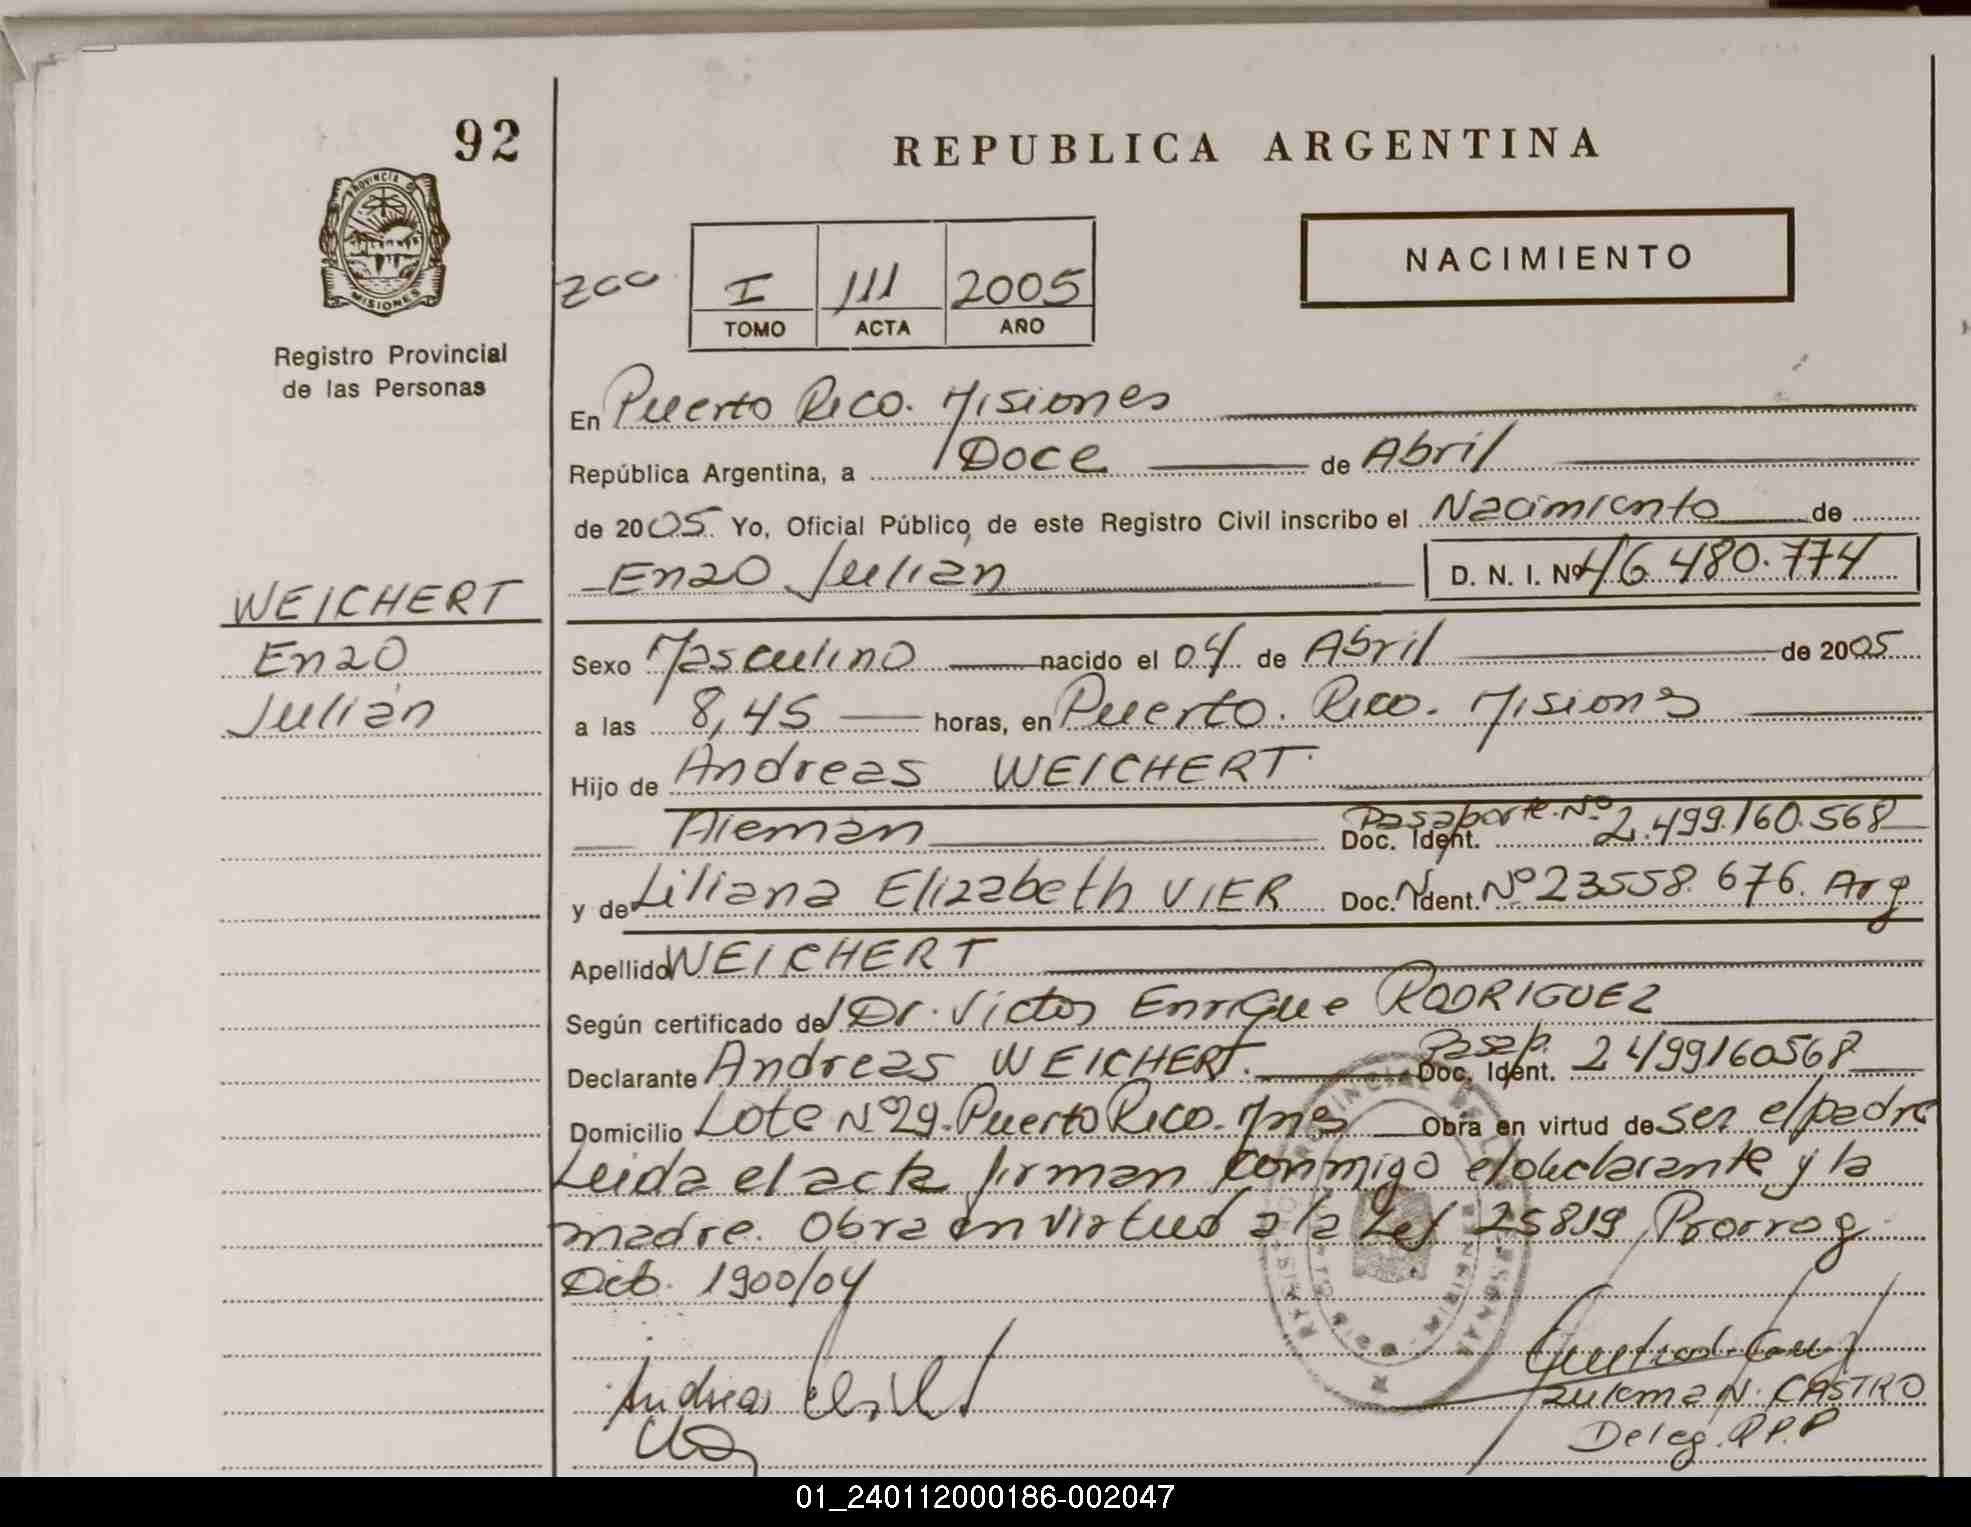 92
REPUBLICA ARGENTINA
PROVINCIA DE
MISIONES
Registro Provincial
de las Personas
200
I 111 2005
TOMO ACTA AÑO
NACIMIENTO
En Puerto Rico. Misiones
República Argentina, a Doce de Abril
de 2005. Yo, Oficial Público, de este Registro Civil inscribo el Nacimiento de
Enzo Julián D. N. I. Nº 46.480.774
WEICHERT
Enzo
Julián
Sexo Masculino nacido el 04 de Abril de 2005
a las 8,45 horas, en Puerto. Rico. Misiones
Hijo de Andreas WEICHERT.
Alemán Pasaporte Nº Doc. Ident. 2.499.160.568
y de Liliana Elizabeth VIER Doc. Ident. Nº 23558.676. Arg
Apellido WEICHERT
Según certificado del Dr. Victor Enrique RODRIGUEZ
Declarante Andreas WEICHERT. Pasap. Doc. Ident. 2499160568
Domicilio Lote Nº 29. Puerto Rico. Mnes Obra en virtud de ser el padre
Leida el acta firman conmigo el declarante y la
madre. Obra en virtud a la Ley 25819 Prorrog
Dcto. 1900/04
Andreas
Zulema N. CASTRO
Deleg. R.P.P
01_240112000186-002047